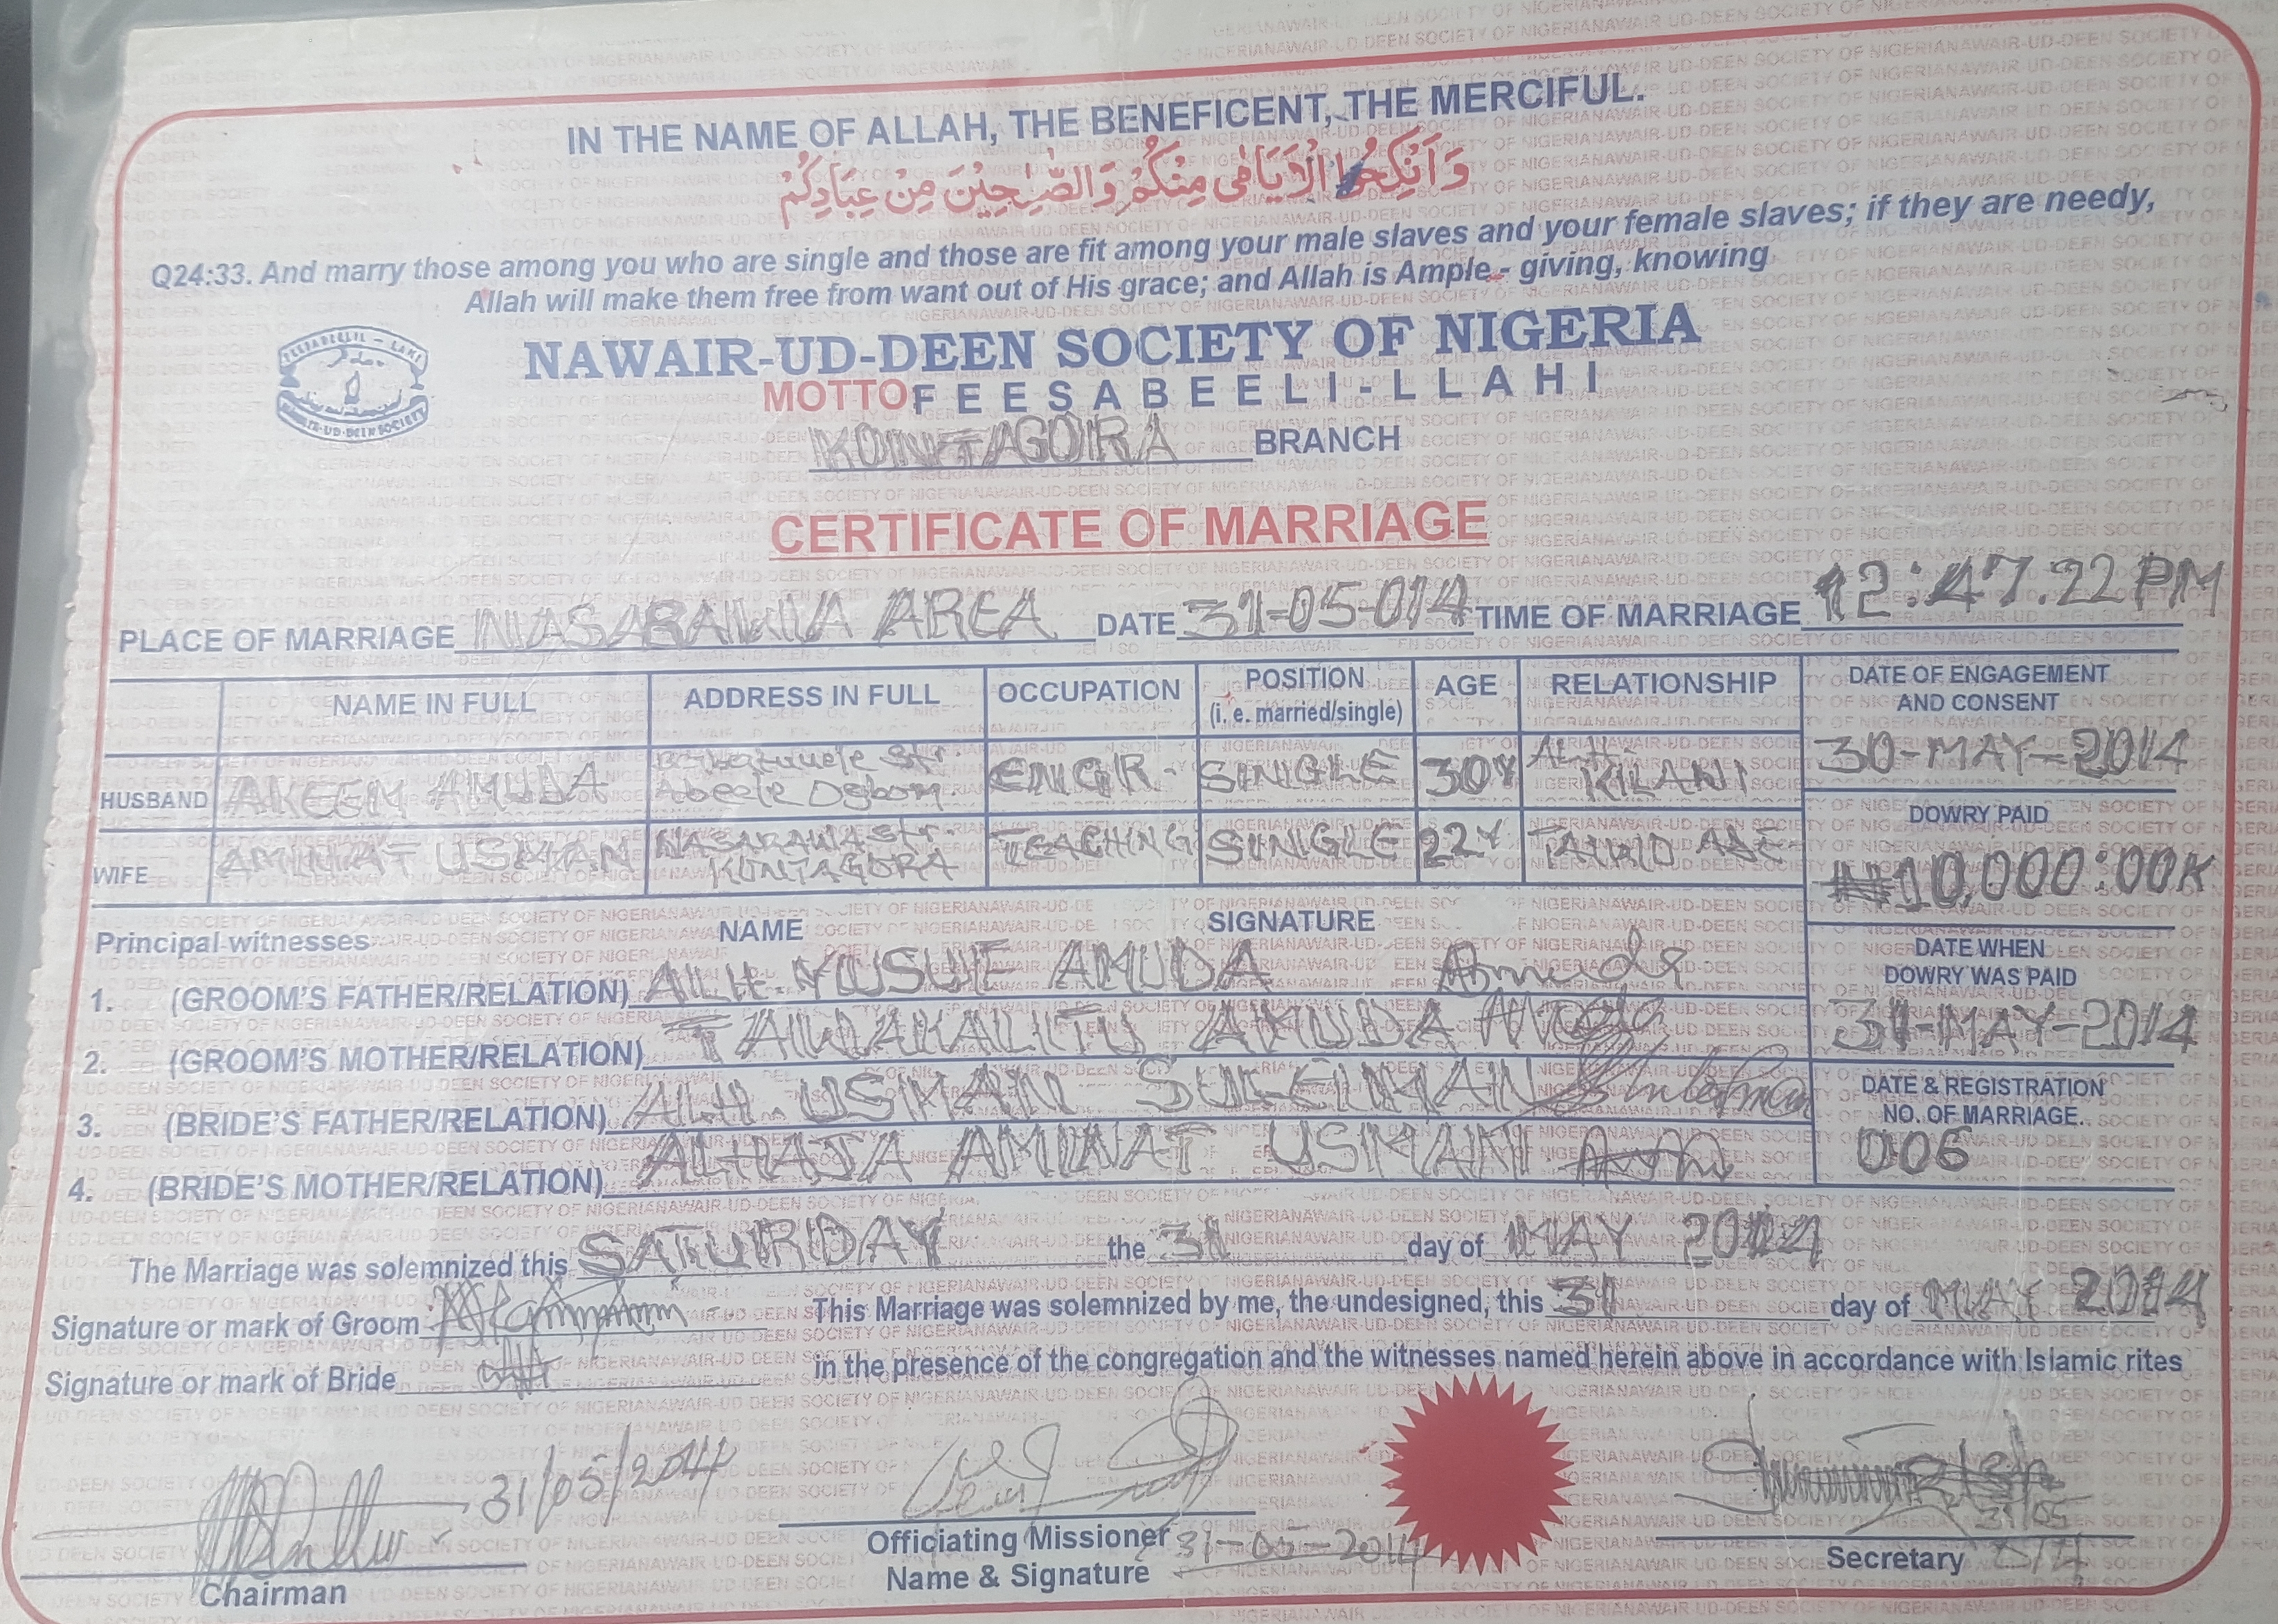 IN THE NAME OF ALLAH, THE BENEFICENT, THE MERCIFUL.
وَاَنْكِحُوا الْاَيَامٰى مِنْكُمْ وَالصّٰلِحِيْنَ مِنْ عِبَادِكُمْ
Q24:33. And marry those among you who are single and those are fit among your male slaves and your female slaves; if they are needy,
Allah will make them free from want out of His grace; and Allah is Ample - giving, knowing
NAWAIR-UD-DEEN SOCIETY OF NIGERIA
MOTTO FEESABEELI-LLAHI
KONTAGORA BRANCH
CERTIFICATE OF MARRIAGE
PLACE OF MARRIAGE NASARAWA AREA DATE 31-05-014 TIME OF MARRIAGE 12:47.22PM
NAME IN FULL ADDRESS IN FULL OCCUPATION POSITION (i. e. married/single) AGE RELATIONSHIP
HUSBAND AKEEM AMUDA Str. Abeere Osbom ENGR. SINGLE 30Y ALH. KILANI
WIFE AMINAT USMAN NASARAWA Str. KONTAGORA TEACHING SINGLE 22Y
DATE OF ENGAGEMENT
AND CONSENT
30-MAY-2014
DOWRY PAID
₦10,000:00K
DATE WHEN
DOWRY WAS PAID
31-MAY-2014
DATE & REGISTRATION
NO. OF MARRIAGE.
006
Principal witnesses NAME SIGNATURE
1. (GROOM'S FATHER/RELATION) ALH. YUSUF AMUDA Amuda
2. (GROOM'S MOTHER/RELATION) TAWAKALITU AMUDA
3. (BRIDE'S FATHER/RELATION) ALH. USMAN SULEIMAN
4. (BRIDE'S MOTHER/RELATION) ALHAJA AMINAT USMAN
The Marriage was solemnized this SATURDAY the 31 day of MAY 2014
Signature or mark of Groom This Marriage was solemnized by me, the undesigned, this 31 day of MAY 2014
Signature or mark of Bride in the presence of the congregation and the witnesses named herein above in accordance with Islamic rites
31/05/2014
Chairman
Officiating Missioner 31-05-2014
Name & Signature
31/05
Secretary